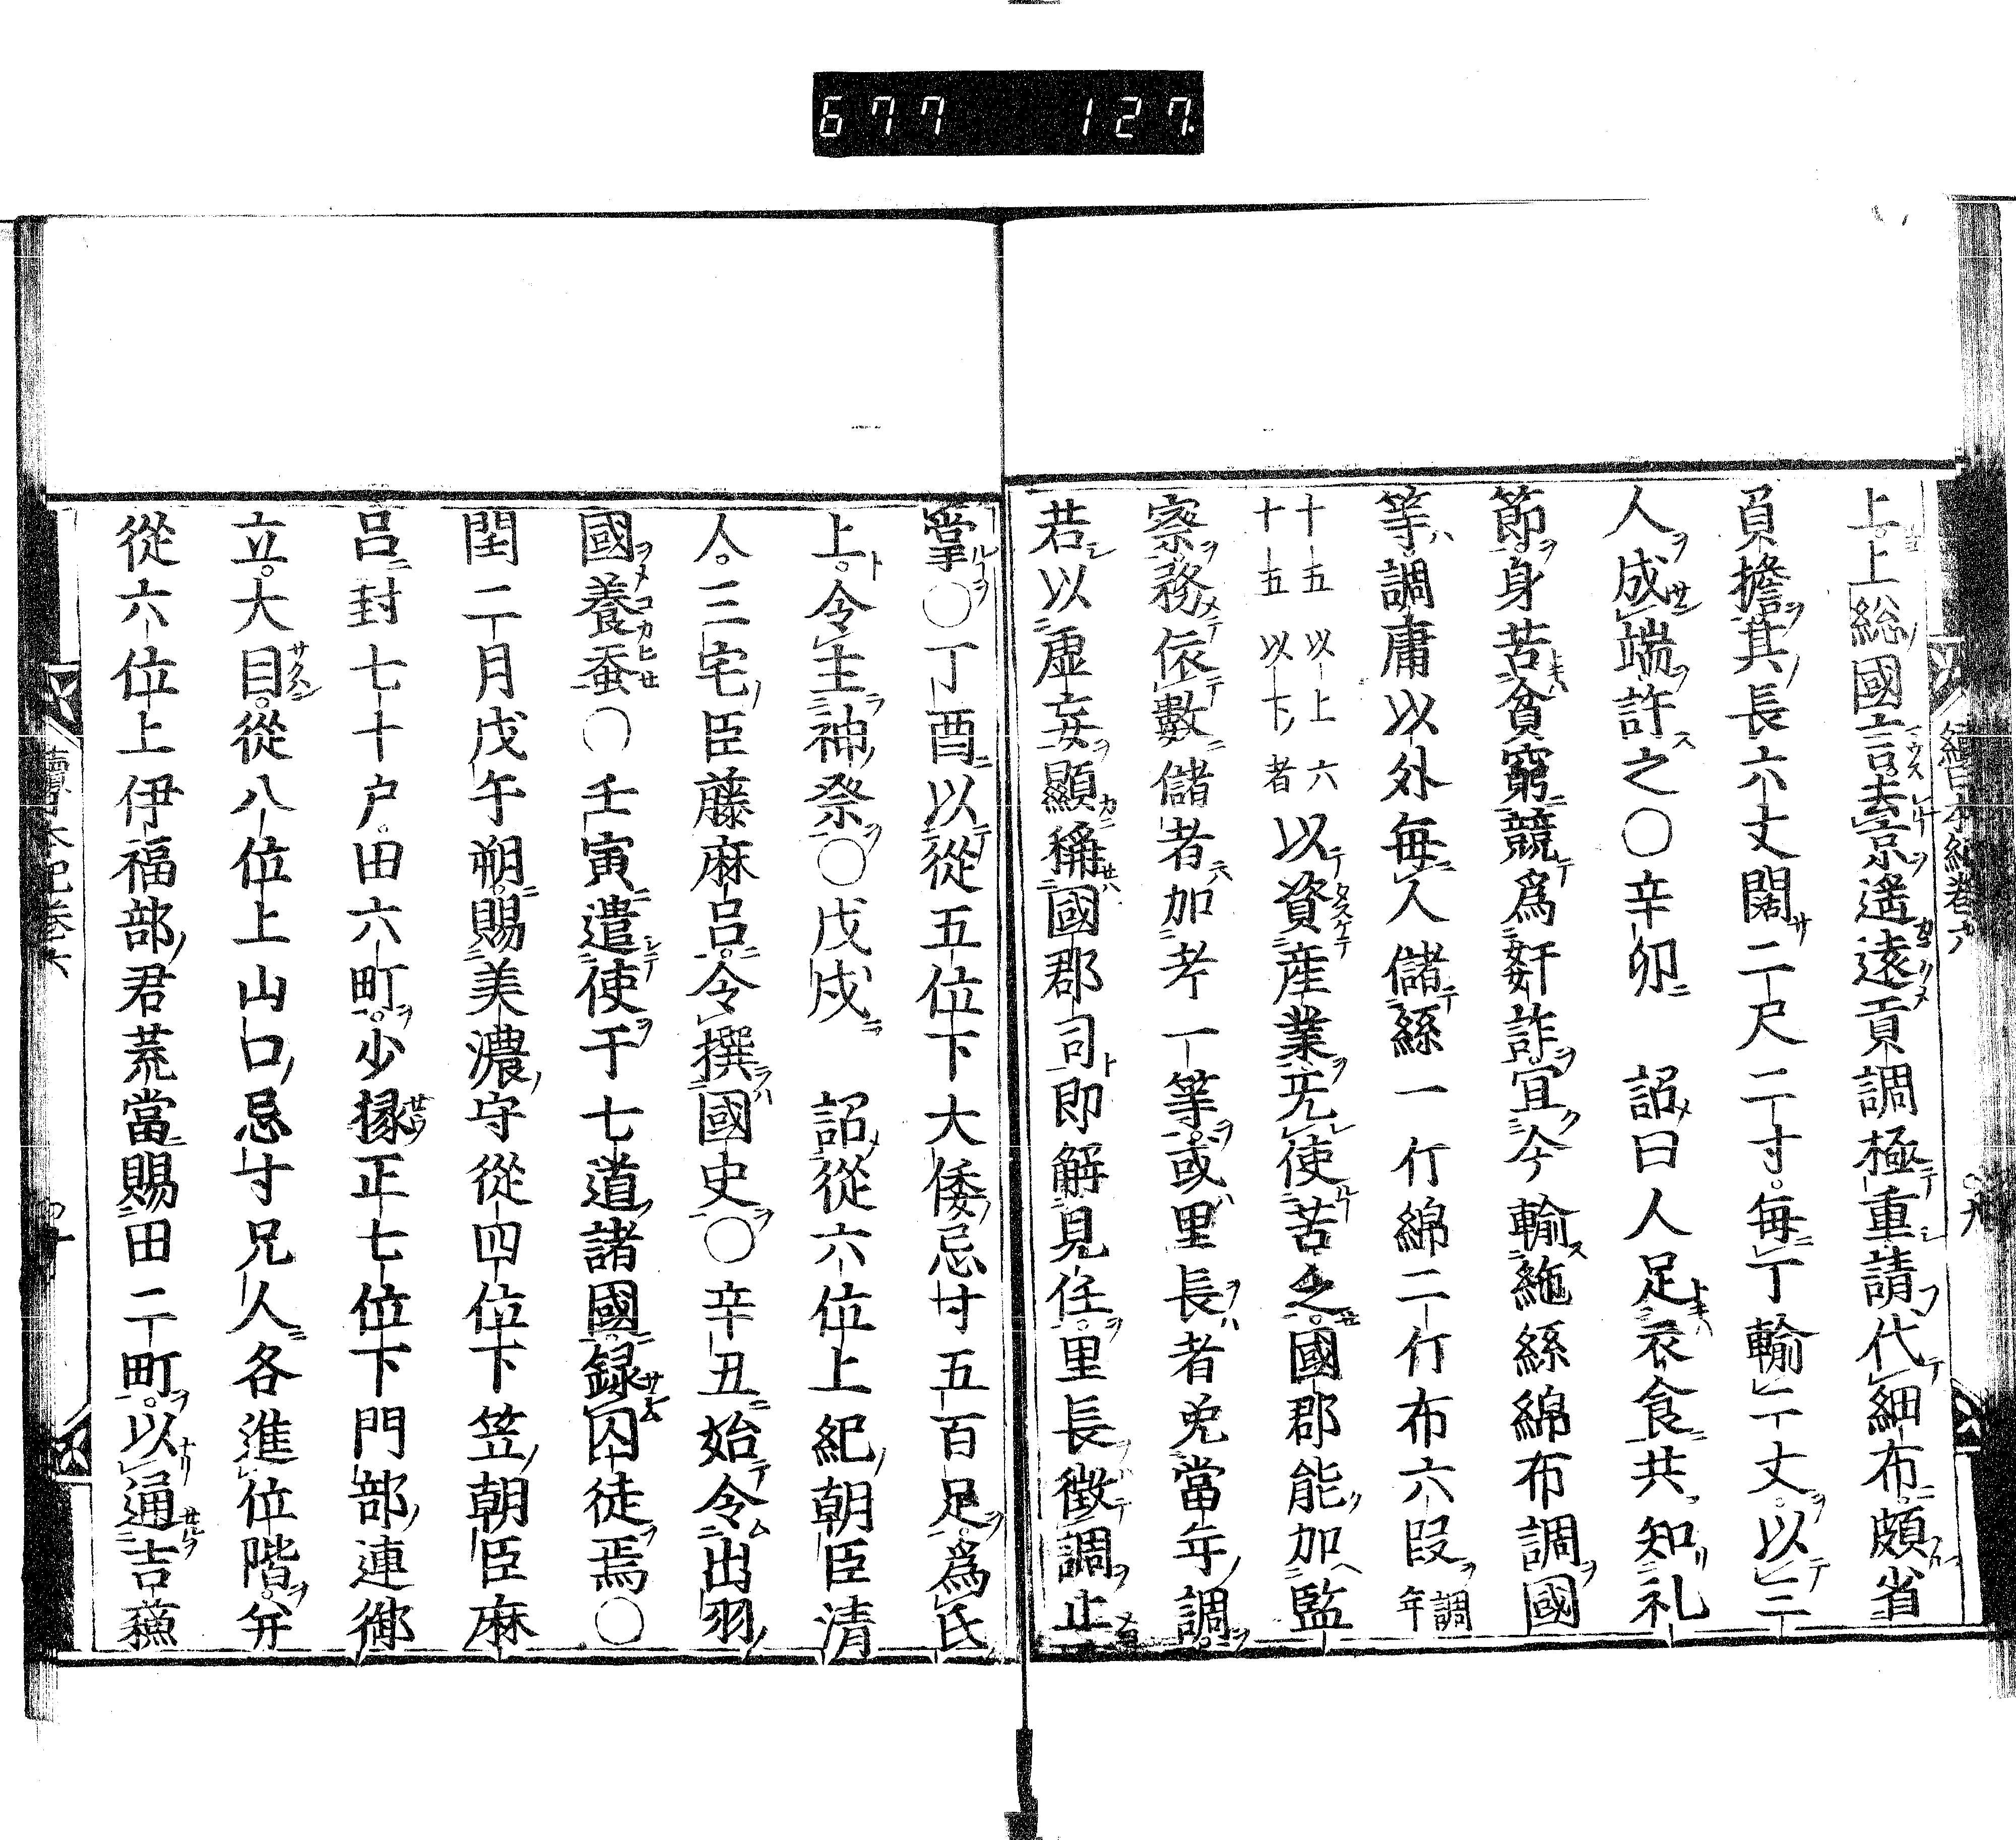 677 127.
續日本紀卷六
上。上総國言。去京遙遠貢調極重請代細布。頗省
負擔其長六丈闊二尺二寸。每丁輸二丈。以三
人成端許之○辛卯 詔曰人足衣食共知礼
節。身苦貧窮競爲奸詐。宜今輸絁絲綿布調國
等。調庸以外每人儲絲一斤綿二斤布六段調年
十五以上六
十五以下者以資産業无使苦之。國郡能加監
察務依數儲者加考一等。或里長者免當年調。
若以虛妄顯稱國郡司即解見任。里長徵調止
掌○丁酉以從五位下大倭忌寸五百足。爲氏
上。令主神祭○戊戌 詔從六位上紀朝臣清
人。三宅臣藤麻呂。令撰國史○辛丑始令出羽
國養蚕○壬寅遣使于七道諸國。録囚徒焉○
閏二月戊午朔。賜美濃守從四位下笠朝臣麻
呂封七十户。田六町。少掾正七位下門部連御
立。大目。從八位上山口忌寸兄人各進位階。并
從六位上伊福部君荒當賜田二町。以通吉蘓